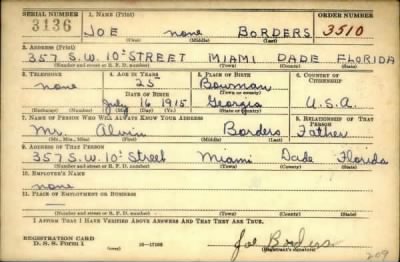 SERIAL NUMBER 1. NAME (Print) ORDER NUMBER
3136 JOE none BORDERS 3510
(First) (Middle) (Last)
2. ADDRESS (Print)
357 S.W. 10 STREET MIAMI DADE FLORIDA
(Number and street or R. F. D. number) (Town) (County) (State)
3. TELEPHONE 4. AGE IN YEARS 5. PLACE OF BIRTH 6. COUNTRY OF CITIZENSHIP
none 25 Bowman
DATE OF BIRTH (Town or county)
July 16 1915 Georgia U.S.A.
(Exchange) (Number) (Mo.) (Day) (Yr.) (State or country)
7. NAME OF PERSON WHO WILL ALWAYS KNOW YOUR ADDRESS 8. RELATIONSHIP OF THAT PERSON
Mr. Alvin Borders Father
(Mr., Mrs., Miss) (First) (Middle) (Last)
9. ADDRESS OF THAT PERSON
357 S.W. 10 Street Miami Dade Florida
(Number and street or R. F. D. number) (Town) (County) (State)
10. EMPLOYER'S NAME
none
11. PLACE OF EMPLOYMENT OR BUSINESS
—
(Number and street or R. F. D. number) (Town) (County) (State)
I AFFIRM THAT I HAVE VERIFIED ABOVE ANSWERS AND THAT THEY ARE TRUE.
REGISTRATION CARD
D. S. S. Form 1 Joe Borders
(Registrant's signature)
209